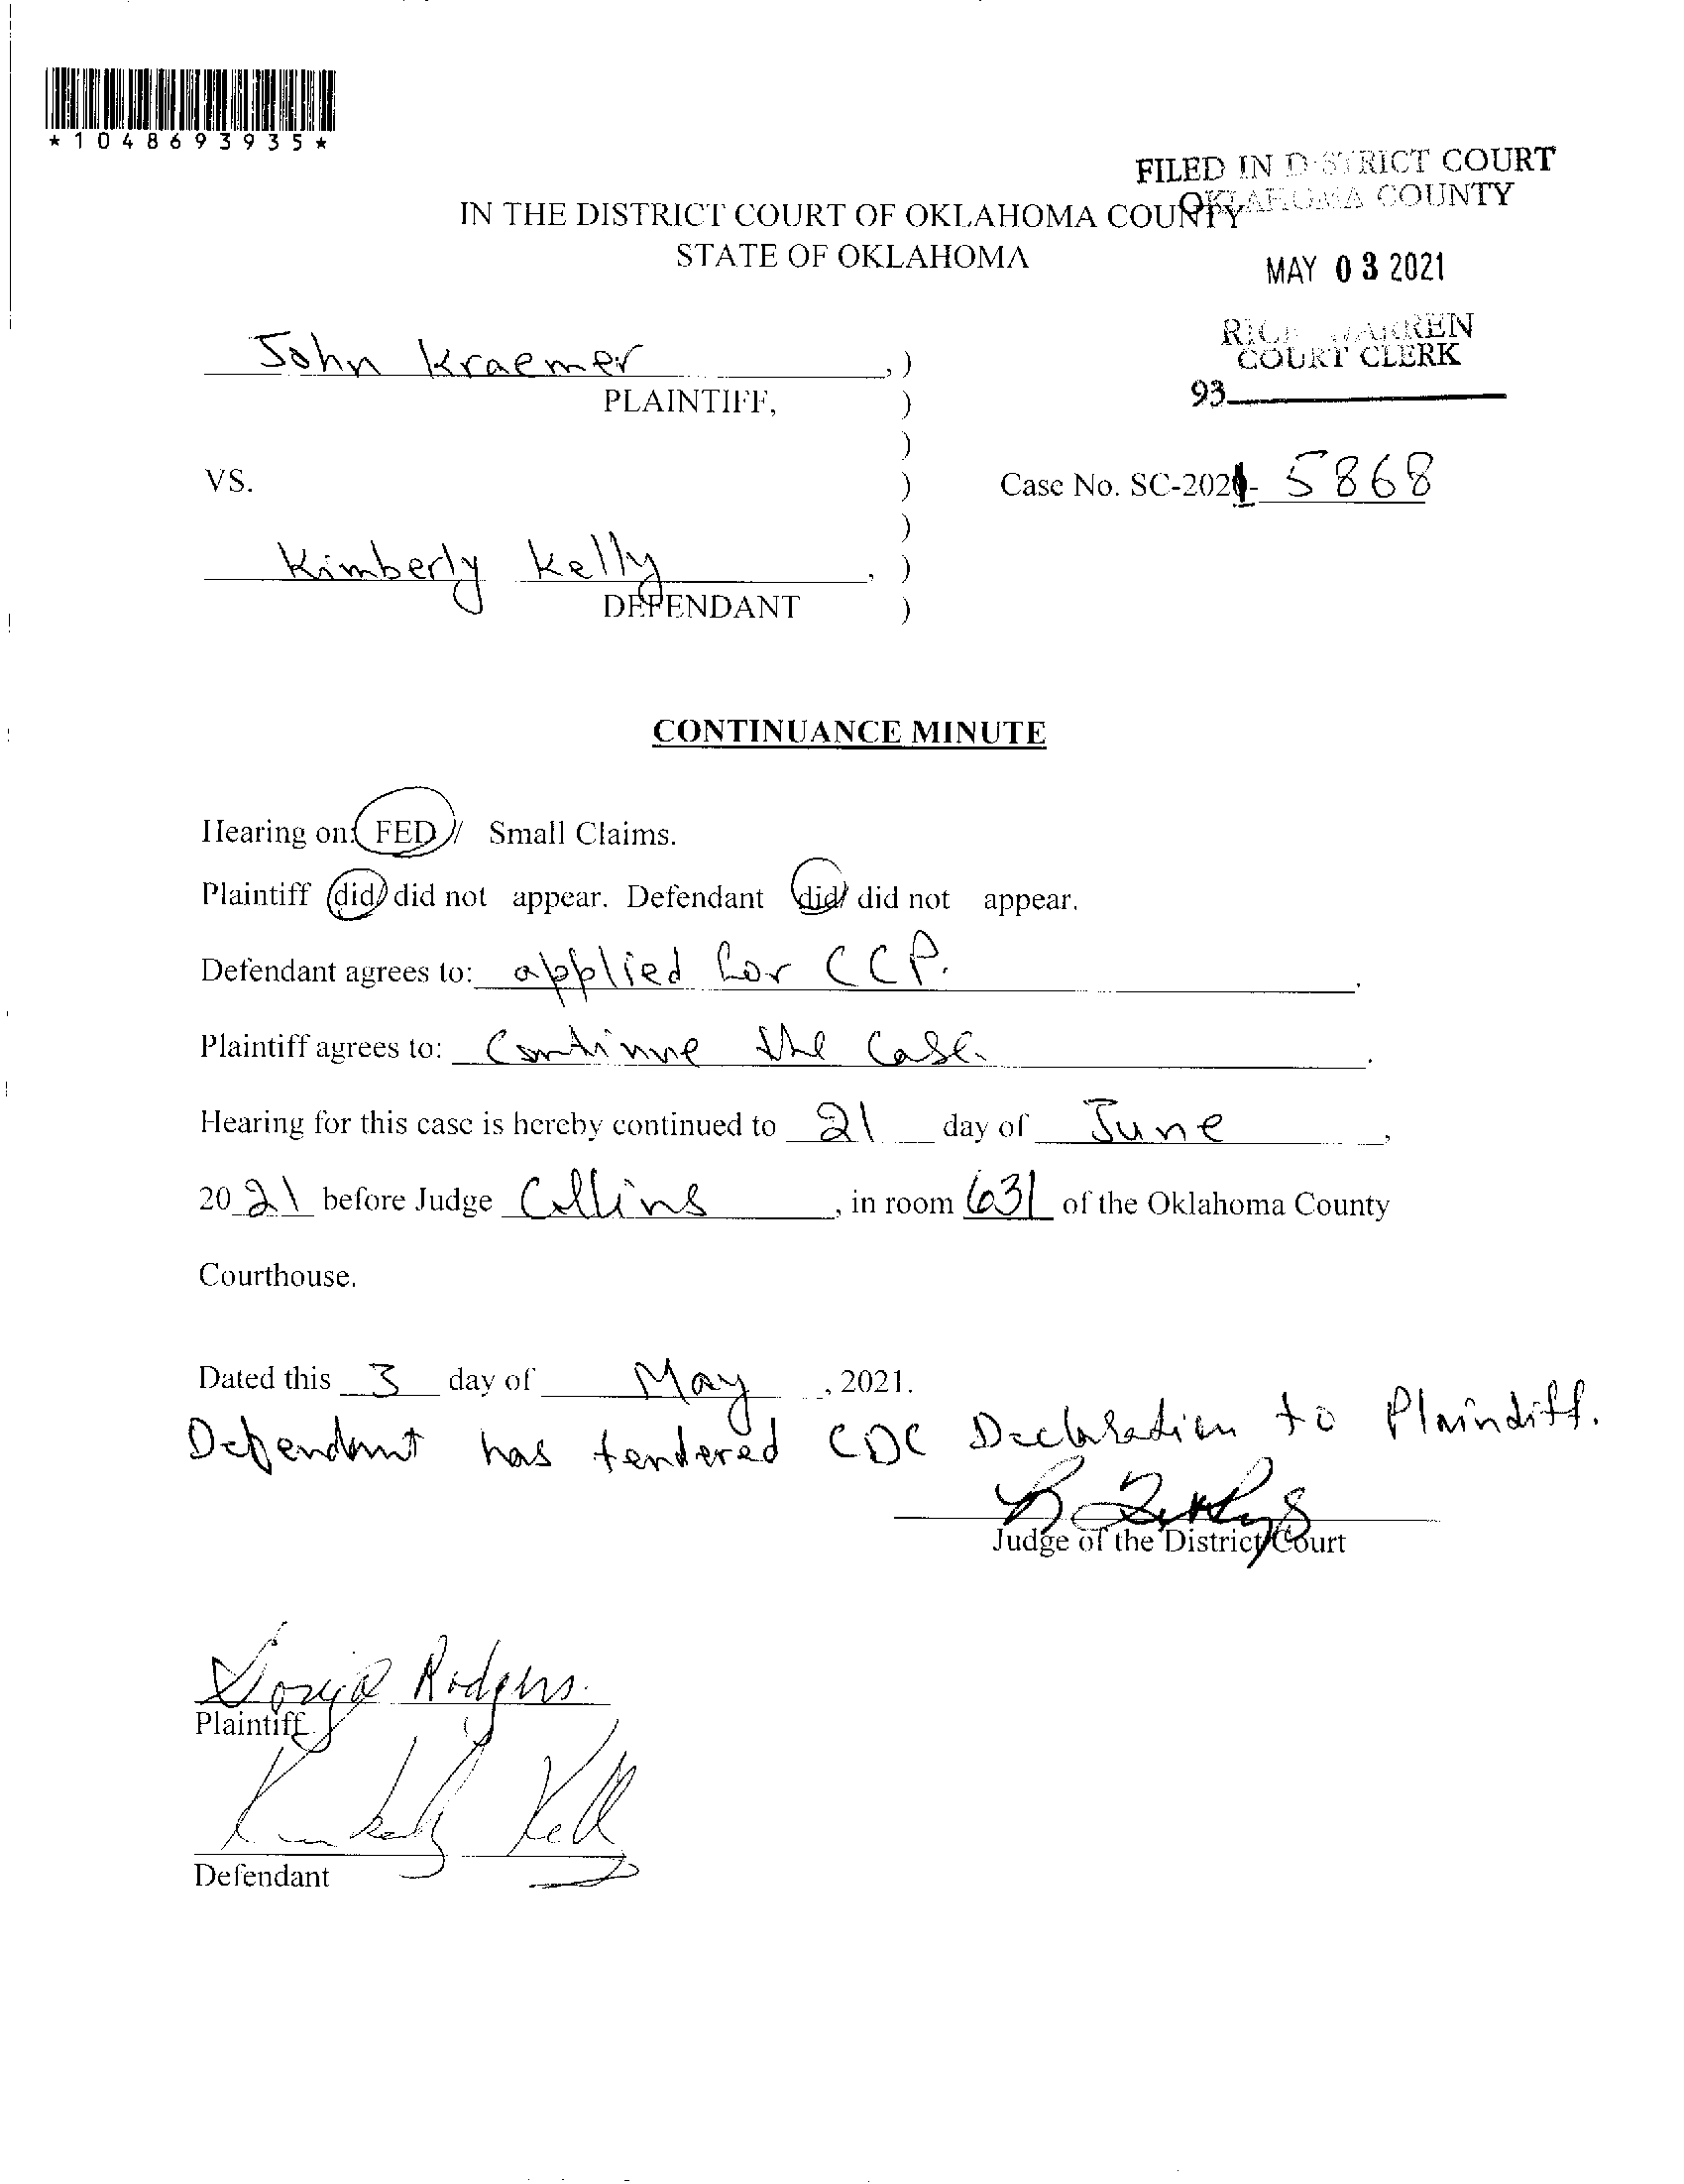 *1048693935*
FILED IN DISTRICT COURT
OKLAHOMA COUNTY
IN THE DISTRICT COURT OF OKLAHOMA COUNTY
STATE OF OKLAHOMA
MAY 03 2021
WARREN
COURT CLERK
93
John Kraemer, )
PLAINTIFF, )
)
VS. ) Case No. SC-2021- 5868
)
Kimberly Kelly, )
DEFENDANT )
CONTINUANCE MINUTE
Hearing on: FED / Small Claims.
Plaintiff did/ did not appear. Defendant did/ did not appear.
Defendant agrees to: applied for CCP.
Plaintiff agrees to: Continue the Case.
Hearing for this case is hereby continued to 21 day of June,
2021 before Judge Collins, in room 631 of the Oklahoma County
Courthouse.
Dated this 3 day of May, 2021.
Defendant has tendered CDC Declaration to Plaintiff.
Judge of the District Court
Rodgers.
Plaintiff
Kimberly Kelly
Defendant